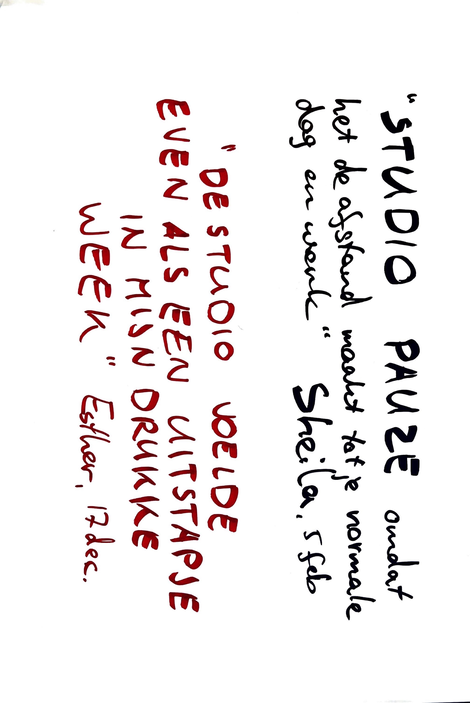 "STUDIO PAUZE omdat
het de afstand maakt tot je normale
dag en werk" Sheila, 5 feb
"DE STUDIO VOELDE
EVEN ALS EEN UITSTAPJE
IN MIJN DRUKKE
WEEK" Esther, 17 dec.